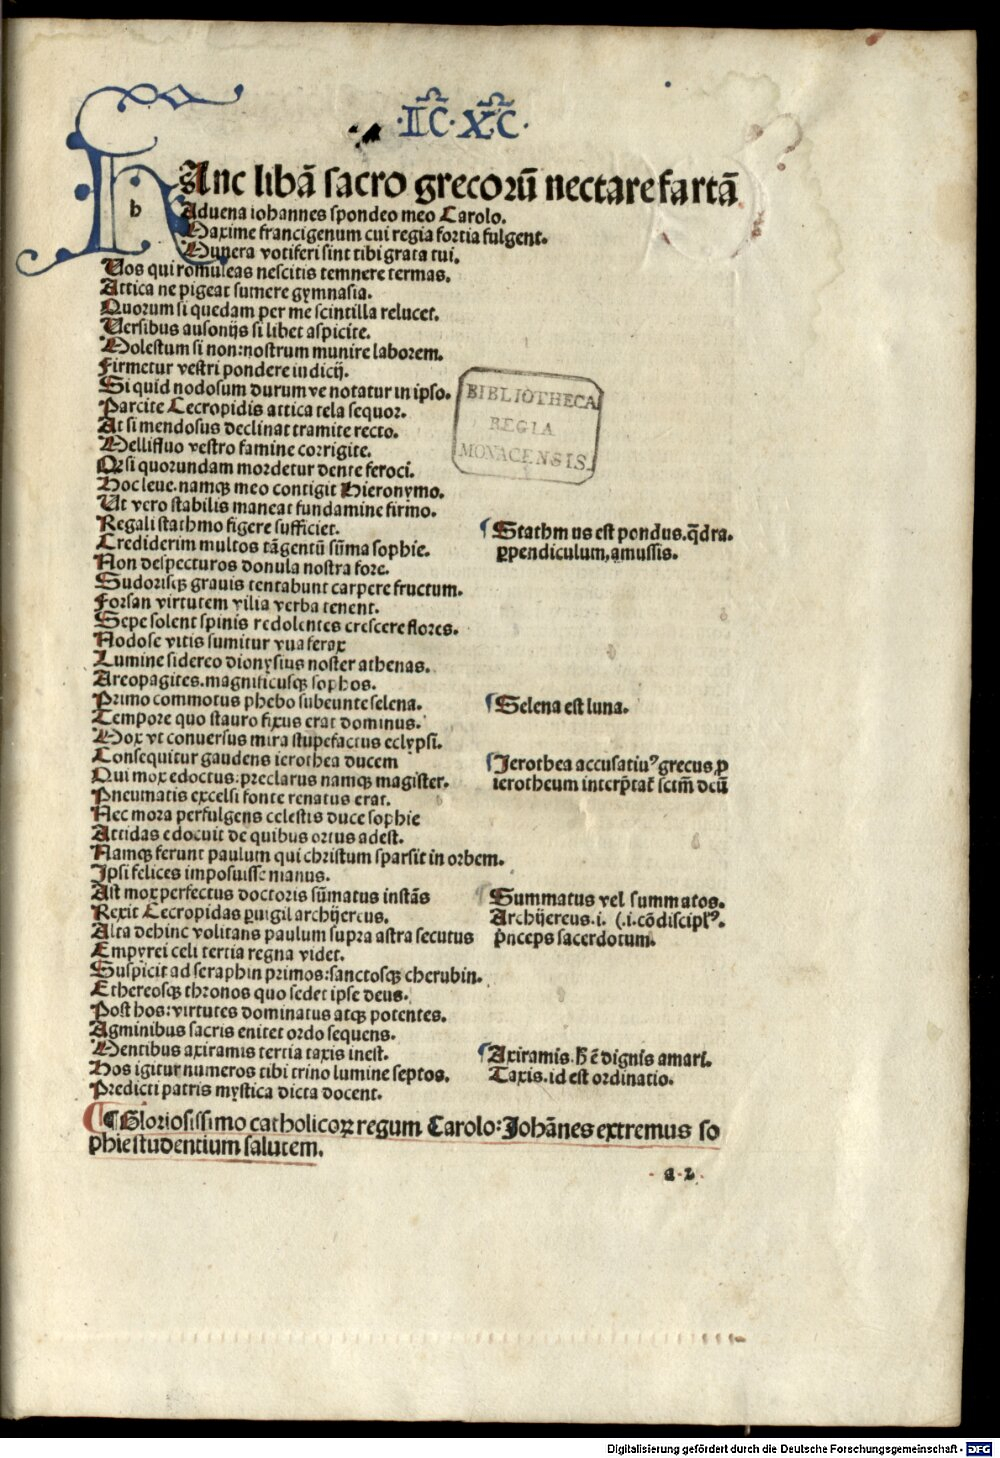 ·IIC̄·XC̄·
hAnc libã sacro grecorũ nectare fartã
Aduena iohannes spondeo meo Carolo.
Maxime francigenum cui regia fortia fulgent.
Munera votiferi sint tibi grata tui.
Uos qui romuleas nescitis temnere termas.
Attica ne pigeat sumere gymnasia.
Quorum si quedam per me scintilla relucet.
Uersibus ausonijs si libet aspicite.
Molestum si non: nostrum munire laborem.
Firmetur vestri pondere iudicij.
Si quid nodosum durum ve notatur in ipso.
Parcite Cecropidis attica tela sequor.
At si mendosus declinat tramite recto.
Mellifluo vestro famine corrigite.
Qꝛ si quorundam mordetur dente feroci.
Hoc leue. namqꝫ meo contigit Hieronymo.
Ut vero stabilis maneat fundamine firmo.
Regali stathmo figere sufficiet.
¶ Stathmus est pondus. q̄dra.
Crediderim multos tãgentũ sũma sophie.
ꝑpendiculum, amussis.
Non despecturos donula nostra fore.
Sudorisqꝫ grauis tentabunt carpere fructum.
Forsan virtutem vilia verba tenent.
Sepe solent spinis redolentes crescere flores.
Nodose vitis sumitur vua ferax
Lumine sidereo dionysius noster athenas.
Areopagites. magnificusqꝫ sophos.
Primo commotus phebo subeunte selena.
¶ Selena est luna.
Tempore quo stauro fixus erat dominus.
Mox vt conuersus mira stupefactus eclypsi.
Consequitur gaudens ierothea ducem
¶ Jerothea accusatiuꝰ grecus, ꝓ
Qui mox edoctus: preclarus namqꝫ magister.
ierotheum interp̃tat̃ sctm̃ deũ
Pneumatis excelsi fonte renatus erat.
Nec mora perfulgens celestis duce sophie
Attidas edocuit de quibus ortus adest.
Namqꝫ ferunt paulum qui christum sparsit in orbem.
Ipsi felices imposuisse manus.
Ast mox perfectus doctoris sũmatus instãs
¶ Summatus vel summatos.
Rexit Cecropidas ꝑuigil archijereus.
Archijereus .i. (.i. cõdisciplꝰ.
Alta dehinc volitans paulum supra astra secutus
p̃nceps sacerdotum.
Empyrei celi tertia regna videt.
Suspicit ad seraphin primos: sanctosqꝫ cherubin.
Ethereosqꝫ thronos quo sedet ipse deus.
Post hos: virtutes dominatus atqꝫ potentes.
Agminibus sacris enitet ordo sequens.
Mentibus axiramis tertia taxis inest.
¶ Axiramis. h̄ ē dignis amari.
Hos igitur numeros tibi trino lumine septos.
Taxis. id est ordinatio.
Predicti patris mystica dicta docent.
¶ Gloriosissimo catholicoꝝ regum Carolo: Johãnes extremus so
phie studentium salutem.
a 2
BIBLIOTHECA
REGIA
MONACENSIS.
Digitalisierung gefördert durch die Deutsche Forschungsgemeinschaft - DFG